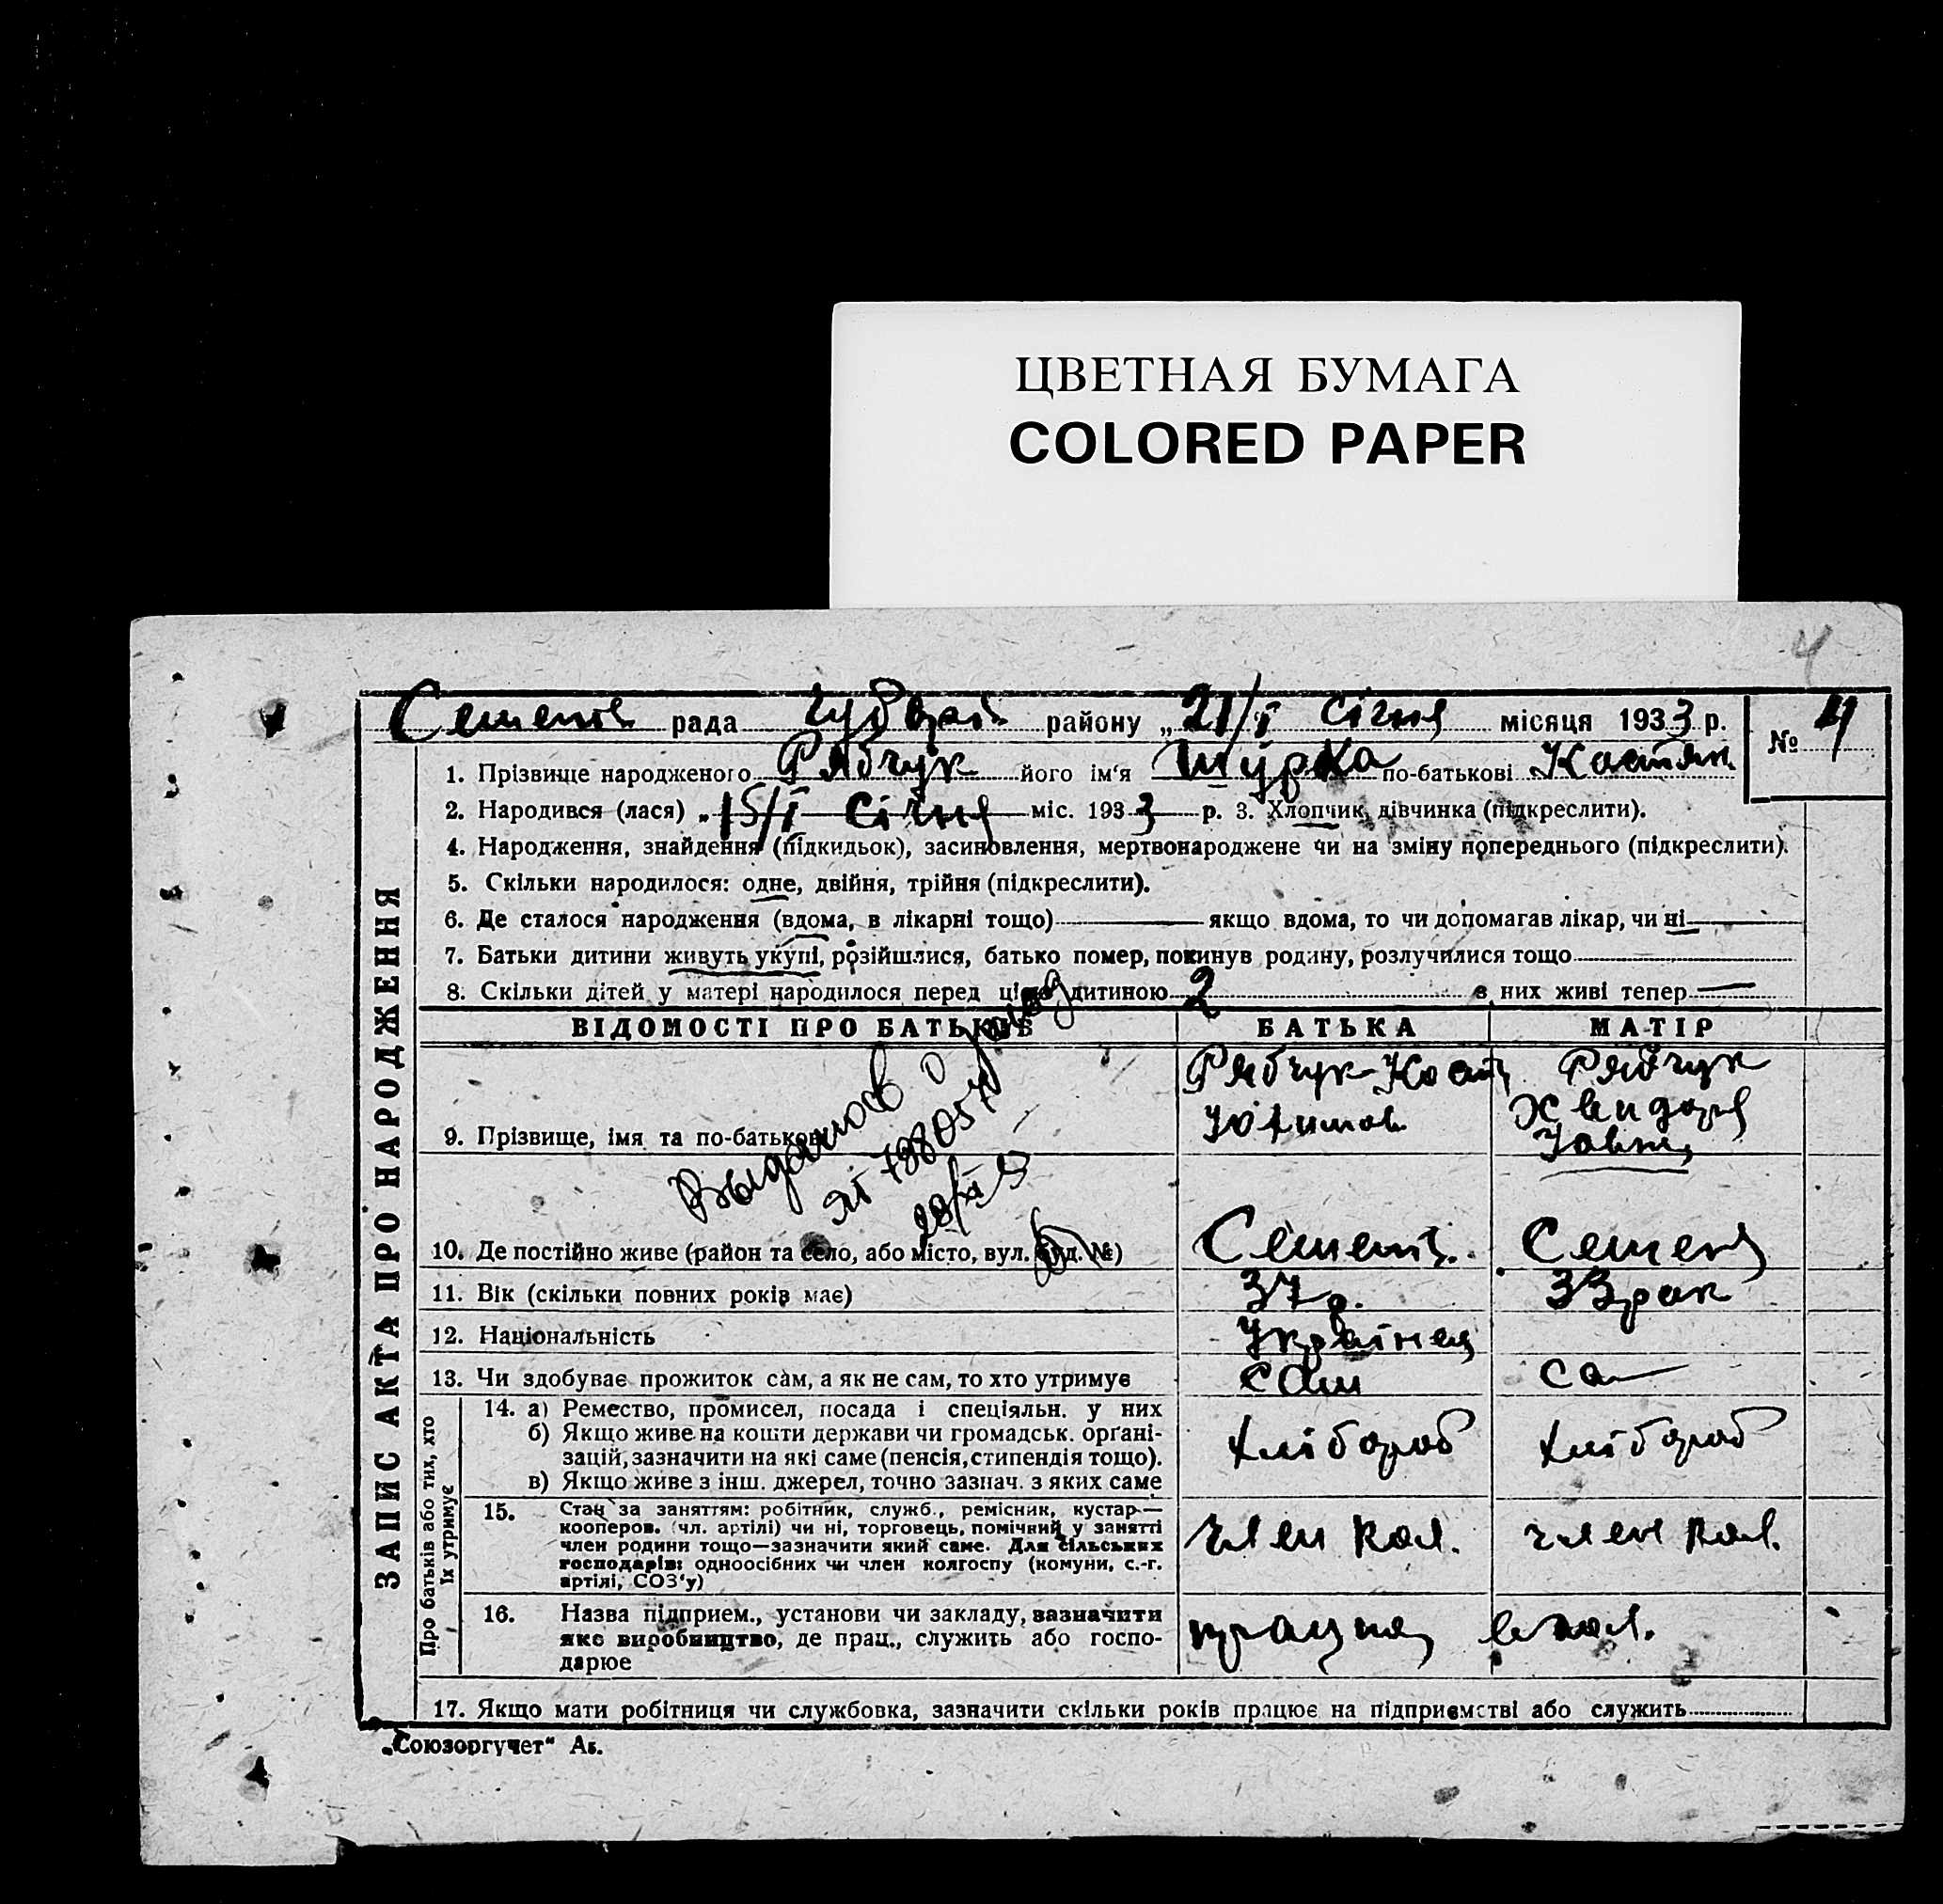 ЦВЕТНАЯ БУМАГА
COLORED PAPER
4
рада району „21/I січня місяця 1933 р. № 4
1. Прізвище народженого Рябчук його ім‘я Шурка по-батькові Костян
2. Народився (лася) „15/I січня міс. 1933 р. 3. Хлопчик, дівчинка (підкреслити).
4. Народження, знайдення (підкидьок), засиновлення, мертвонароджене чи на зміну попереднього (підкреслити).
5. Скільки народилося: одне, двійня, трійня (підкреслити).
6. Де сталося народження (вдома, в лікарні тощо) якщо вдома, то чи допомагав лікар, чи ні
7. Батьки дитини живуть укупі, розійшлися, батько помер, покинув родину, розлучилися тощо
8. Скільки дітей у матері народилося перед цією дитиною 2 з них живі тепер —
ВІДОМОСТІ ПРО БАТЬКІВ БАТЬКА МАТІР
9. Прізвище, імя та по-батькові Рябчук Рябчук
10. Де постійно живе (район та село, або місто, вул. буд. №)
11. Вік (скільки повних років має) 37 р. 33 рок
12. Національність Українец
13. Чи здобуває прожиток сам, а як не сам, то хто утримує сам са
14. а) Ремество, промисел, посада і спеціяльн. у них хлібороб хлібороб
б) Якщо живе на кошти держави чи громадськ. орґані-
зацій, зазначити на які саме (пенсія, стипендія тощо).
в) Якщо живе з інш. джерел, точно зазнач. з яких саме
15. Стан за заняттям: робітник, служб., ремісник, кустар—
кооперов. (чл. артілі) чи ні, торговець, помічний у занятті
член родини тощо—зазначити який саме. Для сільських
господарів: одноосібних чи член колгоспу (комуни, с.-г.
артілі, СОЗ‘у)
член кол. член кол.
16. Назва підприєм., установи чи закладу, зазначити
яке виробництво, де прац., служить або госпо-
дарює
в кол.
17. Якщо мати робітниця чи службовка, зазначити скільки років працює на підприємстві або служить
ЗАПИС АКТА ПРО НАРОДЖЕННЯ
Про батьків або тих, хто
їх утримує
„Союзоргучет“